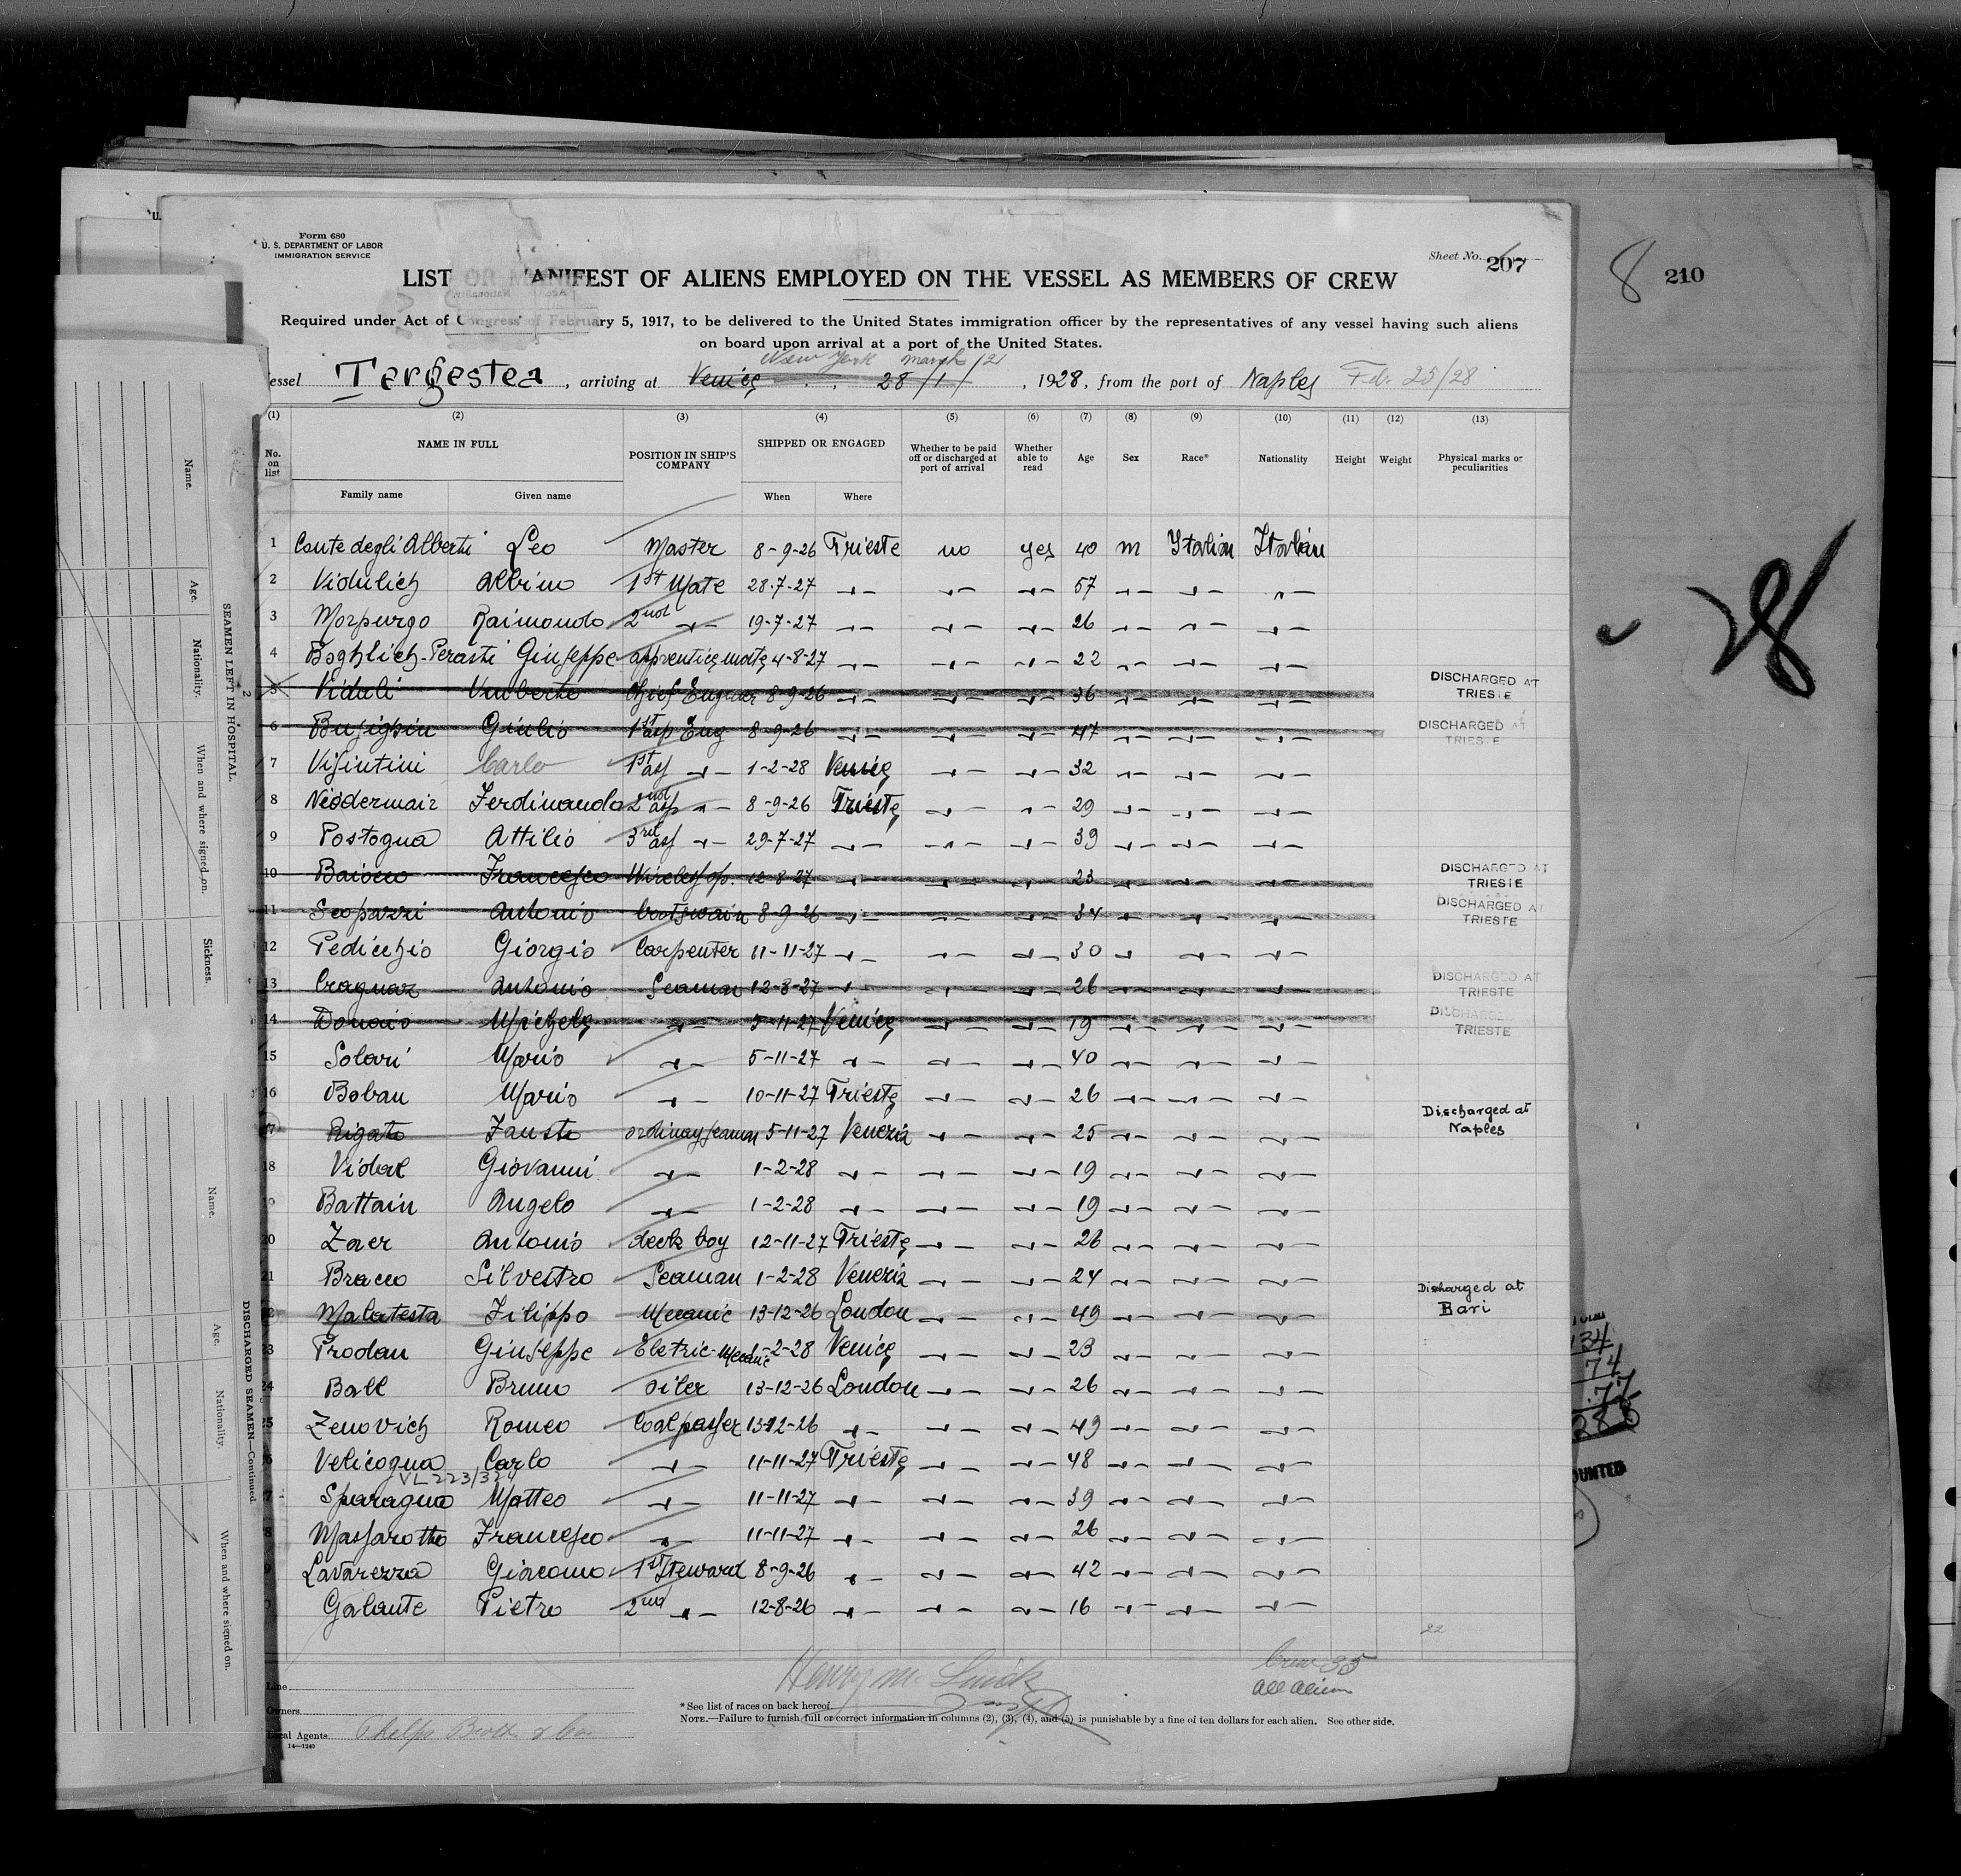 Form 680
U. S. DEPARTMENT OF LABOR
IMMIGRATION SERVICE
Sheet No. 207
8 210
LIST OR MANIFEST OF ALIENS EMPLOYED ON THE VESSEL AS MEMBERS OF CREW
Required under Act of Congress of February 5, 1917, to be delivered to the United States immigration officer by the representatives of any vessel having such aliens
on board upon arrival at a port of the United States.
New York March /21
essel Tergestea, arriving at Venice, 28/1/, 1928, from the port of Naples Feb. 25/28
(1) (2) (3) (4) (5) (6) (7) (8) (9) (10) (11) (12) (13)
No. on list NAME IN FULL POSITION IN SHIP'S COMPANY SHIPPED OR ENGAGED Whether to be paid off or discharged at port of arrival Whether able to read Age Sex Race* Nationality Height Weight Physical marks or peculiarities
Family name Given name When Where
1 Conte degli Alberti Leo Master 8-9-26 Trieste no yes 40 m Italian Italian
2 Vidulich Albino 1st Mate 28-7-27 -"- -"- -"- 57 -"- -"- -"-
3 Morpurgo Raimondo 2nd -"- 19-7-27 -"- -"- -"- 26 -"- -"- -"-
4 Boghlich-Perasti Giuseppe apprentice mate 4-8-27 -"- -"- -"- 22 -"- -"- -"-
5 Viduli Umberto Chief Engineer 8-9-26 -"- -"- -"- 36 -"- -"- -"- DISCHARGED AT TRIESTE
6 Giulio 1st asp Eng 8-9-26 -"- -"- -"- 47 -"- -"- DISCHARGED AT TRIESTE
7 Visintini Carlo 1st ass -"- 1-2-28 Venice -"- -"- 32 -"- -"- -"-
8 Niddermair Ferdinando 2nd asp -"- 8-9-26 Trieste -"- -"- 29 -"- -"- -"-
9 Postogna Attilio 3rd ass -"- 29-7-27 -"- -"- -"- 39 -"- -"- -"-
10 Francesco Wireless op. 12-8-27 -"- -"- -"- 23 -"- -"- -"- DISCHARGED AT TRIESTE
11 Scopazzi Antonio bootswain 8-9-26 -"- -"- -"- 34 -"- -"- -"- DISCHARGED AT TRIESTE
12 Pedicchio Giorgio Carpenter 11-11-27 -"- -"- -"- 30 -"- -"- -"-
13 Cragnaz Antonio Seaman 12-8-27 -"- -"- -"- 26 -"- -"- -"- DISCHARGED AT TRIESTE
14 Donaio Michele -"- 5-11-27 Venice -"- -"- 19 -"- -"- -"- DISCHARGED TRIESTE
15 Solari Mario -"- 5-11-27 -"- -"- -"- 40 -"- -"- -"-
16 Boban Mario -"- 10-11-27 Trieste -"- -"- 26 -"- -"- -"-
17 Rigato Fausto ordinay seaman 5-11-27 Venezia -"- -"- 25 -"- -"- -"- Discharged at Naples
18 Vidal Giovanni -"- 1-2-28 -"- -"- -"- 19 -"- -"- -"-
19 Battain Angelo -"- 1-2-28 -"- -"- -"- 19 -"- -"- -"-
20 Zaer Antonio deck boy 12-11-27 Trieste -"- -"- 26 -"- -"- -"-
21 Bracco Silvestro Seaman 1-2-28 Venezia -"- -"- 24 -"- -"- -"-
22 Malatesta Filippo Mecanic 13-12-26 London -"- -"- 49 -"- -"- -"- Discharged at Bari
23 Prodan Giuseppe Eletric-Mecanic 1-2-28 Venice -"- -"- 23 -"- -"- -"-
24 Ball Bruno oiler 13-12-26 London -"- -"- 26 -"- -"- -"-
25 Zenovich Romeo Coal passer 13-12-26 -"- -"- -"- 49 -"- -"- -"-
6 Velicogna Carlo -"- 11-11-27 Trieste -"- -"- 48 -"- -"- -"-
VL 223/324
7 Sparagna Matteo -"- 11-11-27 -"- -"- -"- 39 -"- -"- -"-
8 Massarotto Francesco -"- 11-11-27 -"- -"- -"- 26 -"- -"- -"-
9 Lavarezza Giacomo 1st Steward 8-9-26 -"- -"- -"- 42 -"- -"- -"-
Galante Pietro 2nd -"- 12-8-26 -"- -"- -"- 16 -"- -"- -"-
22
Crew 35
All alien
Line
Owners
Local Agents Phelps Bros. & Co.
14—1240
*See list of races on back hereof.
NOTE.—Failure to furnish full or correct information in columns (2), (3), (4), and (5) is punishable by a fine of ten dollars for each alien. See other side.
Henry M.
28
134
74
77
SEAMEN LEFT IN HOSPITAL.
Name.
Age.
Nationality.
When and where signed on.
Sickness.
DISCHARGED SEAMEN—Continued.
Name.
Age.
Nationality.
When and where signed on.